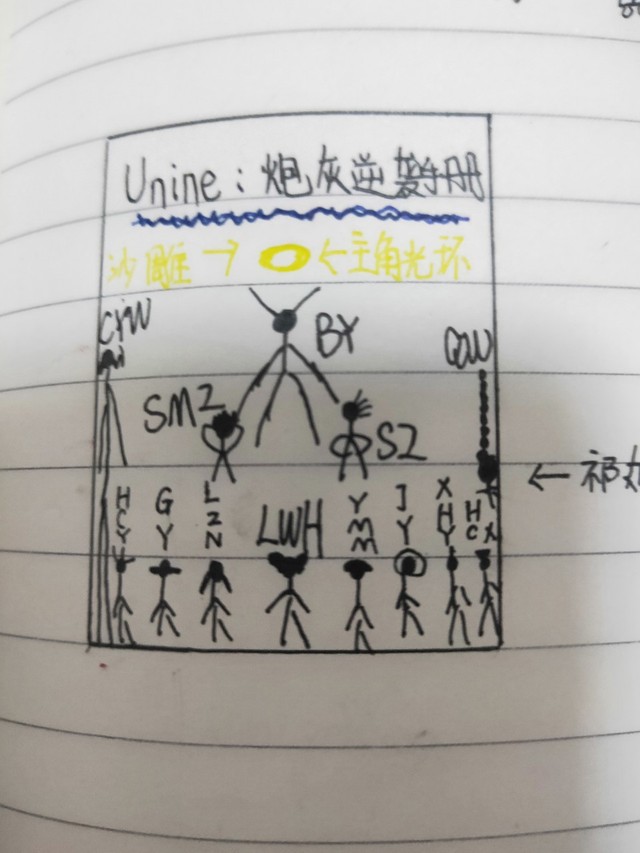 Unine：炮灰逆袭手册
沙雕→ ←主角光环
CYW
BY
QGW
SMZ
SZ
← 祁
HCY
GY
LZN
LWH
YMM
JY
XHY
HCX